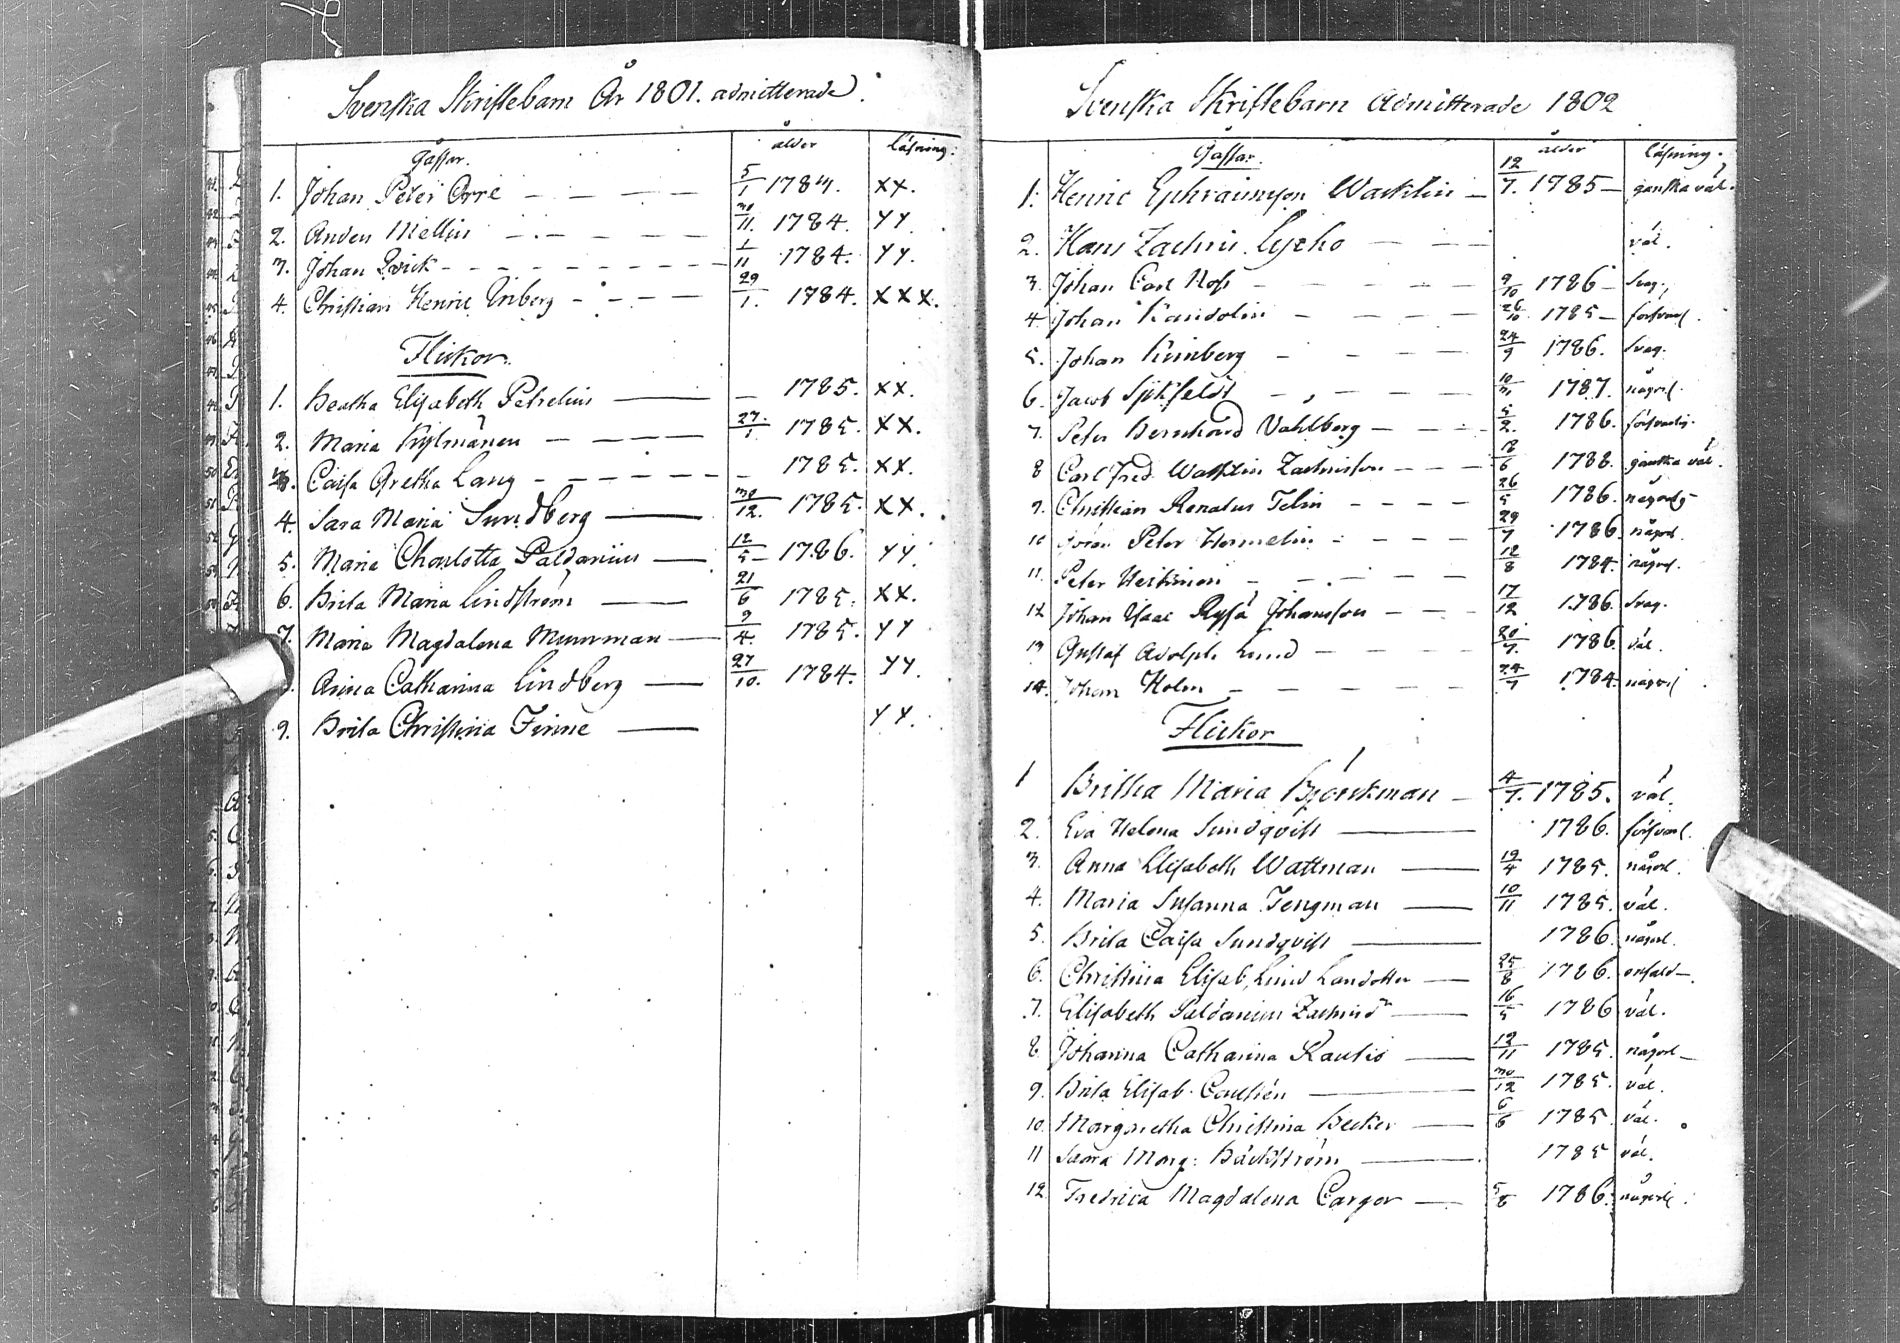 Svenska Skriftebarn År 1801. admitterade.
Gåssar. ålder läsning.
1. Johan Peter Orre 5/1 1784. XX.
2. Anders Mellin 30/11. 1784. YY.
3. Johan Qvick 1/11 1784. YY.
4. Christian Henric Enberg 29/1. 1784. XXX.
Flickor.
1. Beatha Elisabeth Petrelius 1785. XX.
2. Maria Kyllmänen 27/1. 1785. XX.
3. Caisa Gretha Lang 1785. XX.
4. Sara Maria Sundberg 30/12. 1785. XX.
5. Maria Charlotta Paldanius 12/5 1786. YY.
6. Brita Maria Lindström 21/6 1785. XX.
7. Maria Magdalena Muurman 9/4. 1785. YY
Anna Catharina Lindberg 27/10. 1784. YY.
9. Brita Christina Finne YY.
Svenska Skriftebarn Admitterade 1802
Gåssar. ålder läsning.
1. Henric Ephraimsson Wacklin 12/7. 1785 ganska väl.
2. Hans Zachris väl.
3. Johan Carl 9/10 1786 svag.
4. Johan Kandolin 26/10 1785 försvarl.
5. Johan 24/9 1786. svag.
6. Jacob 1787. någorl.
7. Peter Bernhard Vahlberg 5/2. 1786. försvarlig.
8 Carl Fred. Wacklin Zachrisson 12/6 1788. ganska väl.
9. Christian Renatus Telin 26/5 1786. någorlg
10 Peter Hermelin 29/7 1786. någorl.
11. Peter 12/8 1784. någorl.
12 Johan Isaac Johansson 17/12 1786. svag.
13 Gustaf Adolph Lund 20/7. 1786. väl.
14. Johan Holm 24/7 1784. någorl.
Flickor
1 Britha Maria Björckman 4/7. 1785. väl.
2. Eva Helena Sundqvist 1786. försvarl.
3. Anna Elisabeth Wattman 19/4 1785. någorl.
4. Maria Susanna Tengman 10/11 1785. väl.
5. Brita Caisa Sundqvist 1786. någorl.
6. Christina Elisab. Lund 25/8 1786.
7. Elisabeth Paldanius Zachrisdr 16/5 1786 väl.
8. Johanna Catharina Rautio 12/11 1785. någorl
9. Brita Elisab. 30/12 1785. väl.
10. Margaretha Christina Becker 6/6 1785. väl.
11 Marg: Bäckström 1785 väl.
12. Fredrica Magdalena Carger 5/8 1786. någorl.